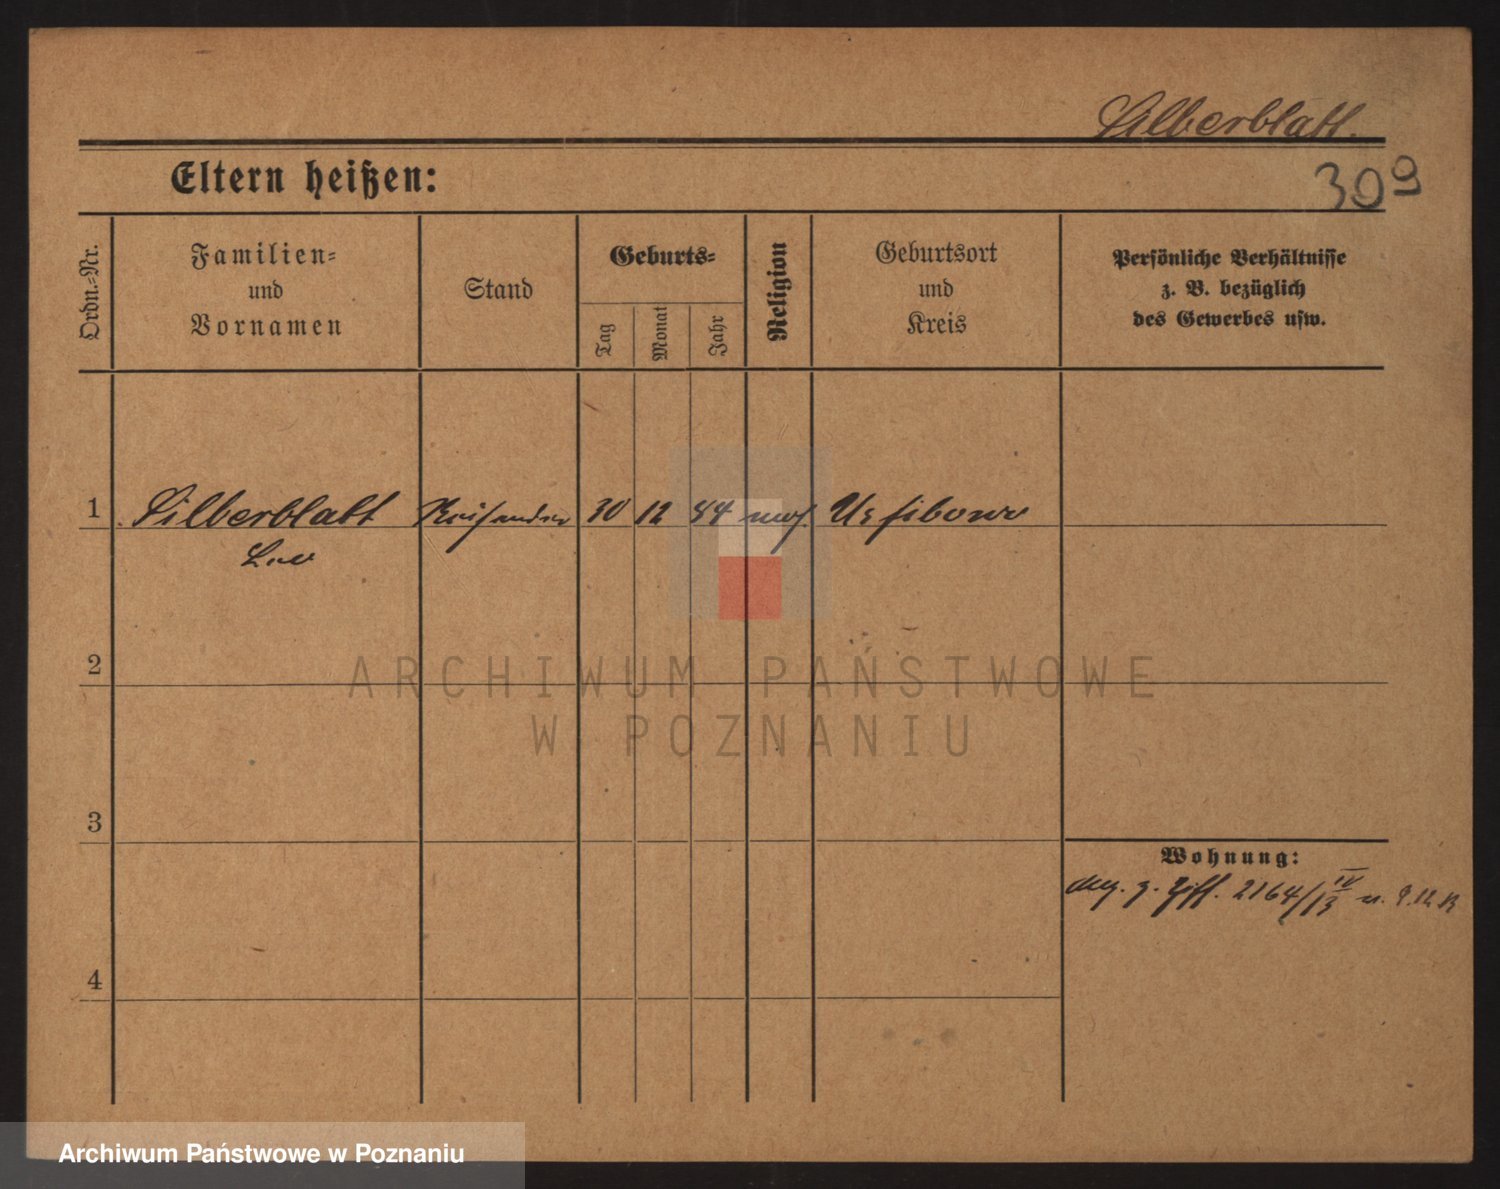 Silberblatt.
309
Eltern heißen:
Ordn.-Nr.
Familien-
und
Vornamen
Stand
Geburts-
Tag
Monat
Jahr
Religion
Geburtsort
und
Kreis
Persönliche Verhältnisse
z. B. bezüglich
des Gewerbes usw.
1 Silberblatt Reisender 30 12 84 mos.
Leo
2
3
4
Wohnung:
2164/13 IV
ARCHIWUM PAŃSTWOWE
W POZNANIU
Archiwum Państwowe w Poznaniu